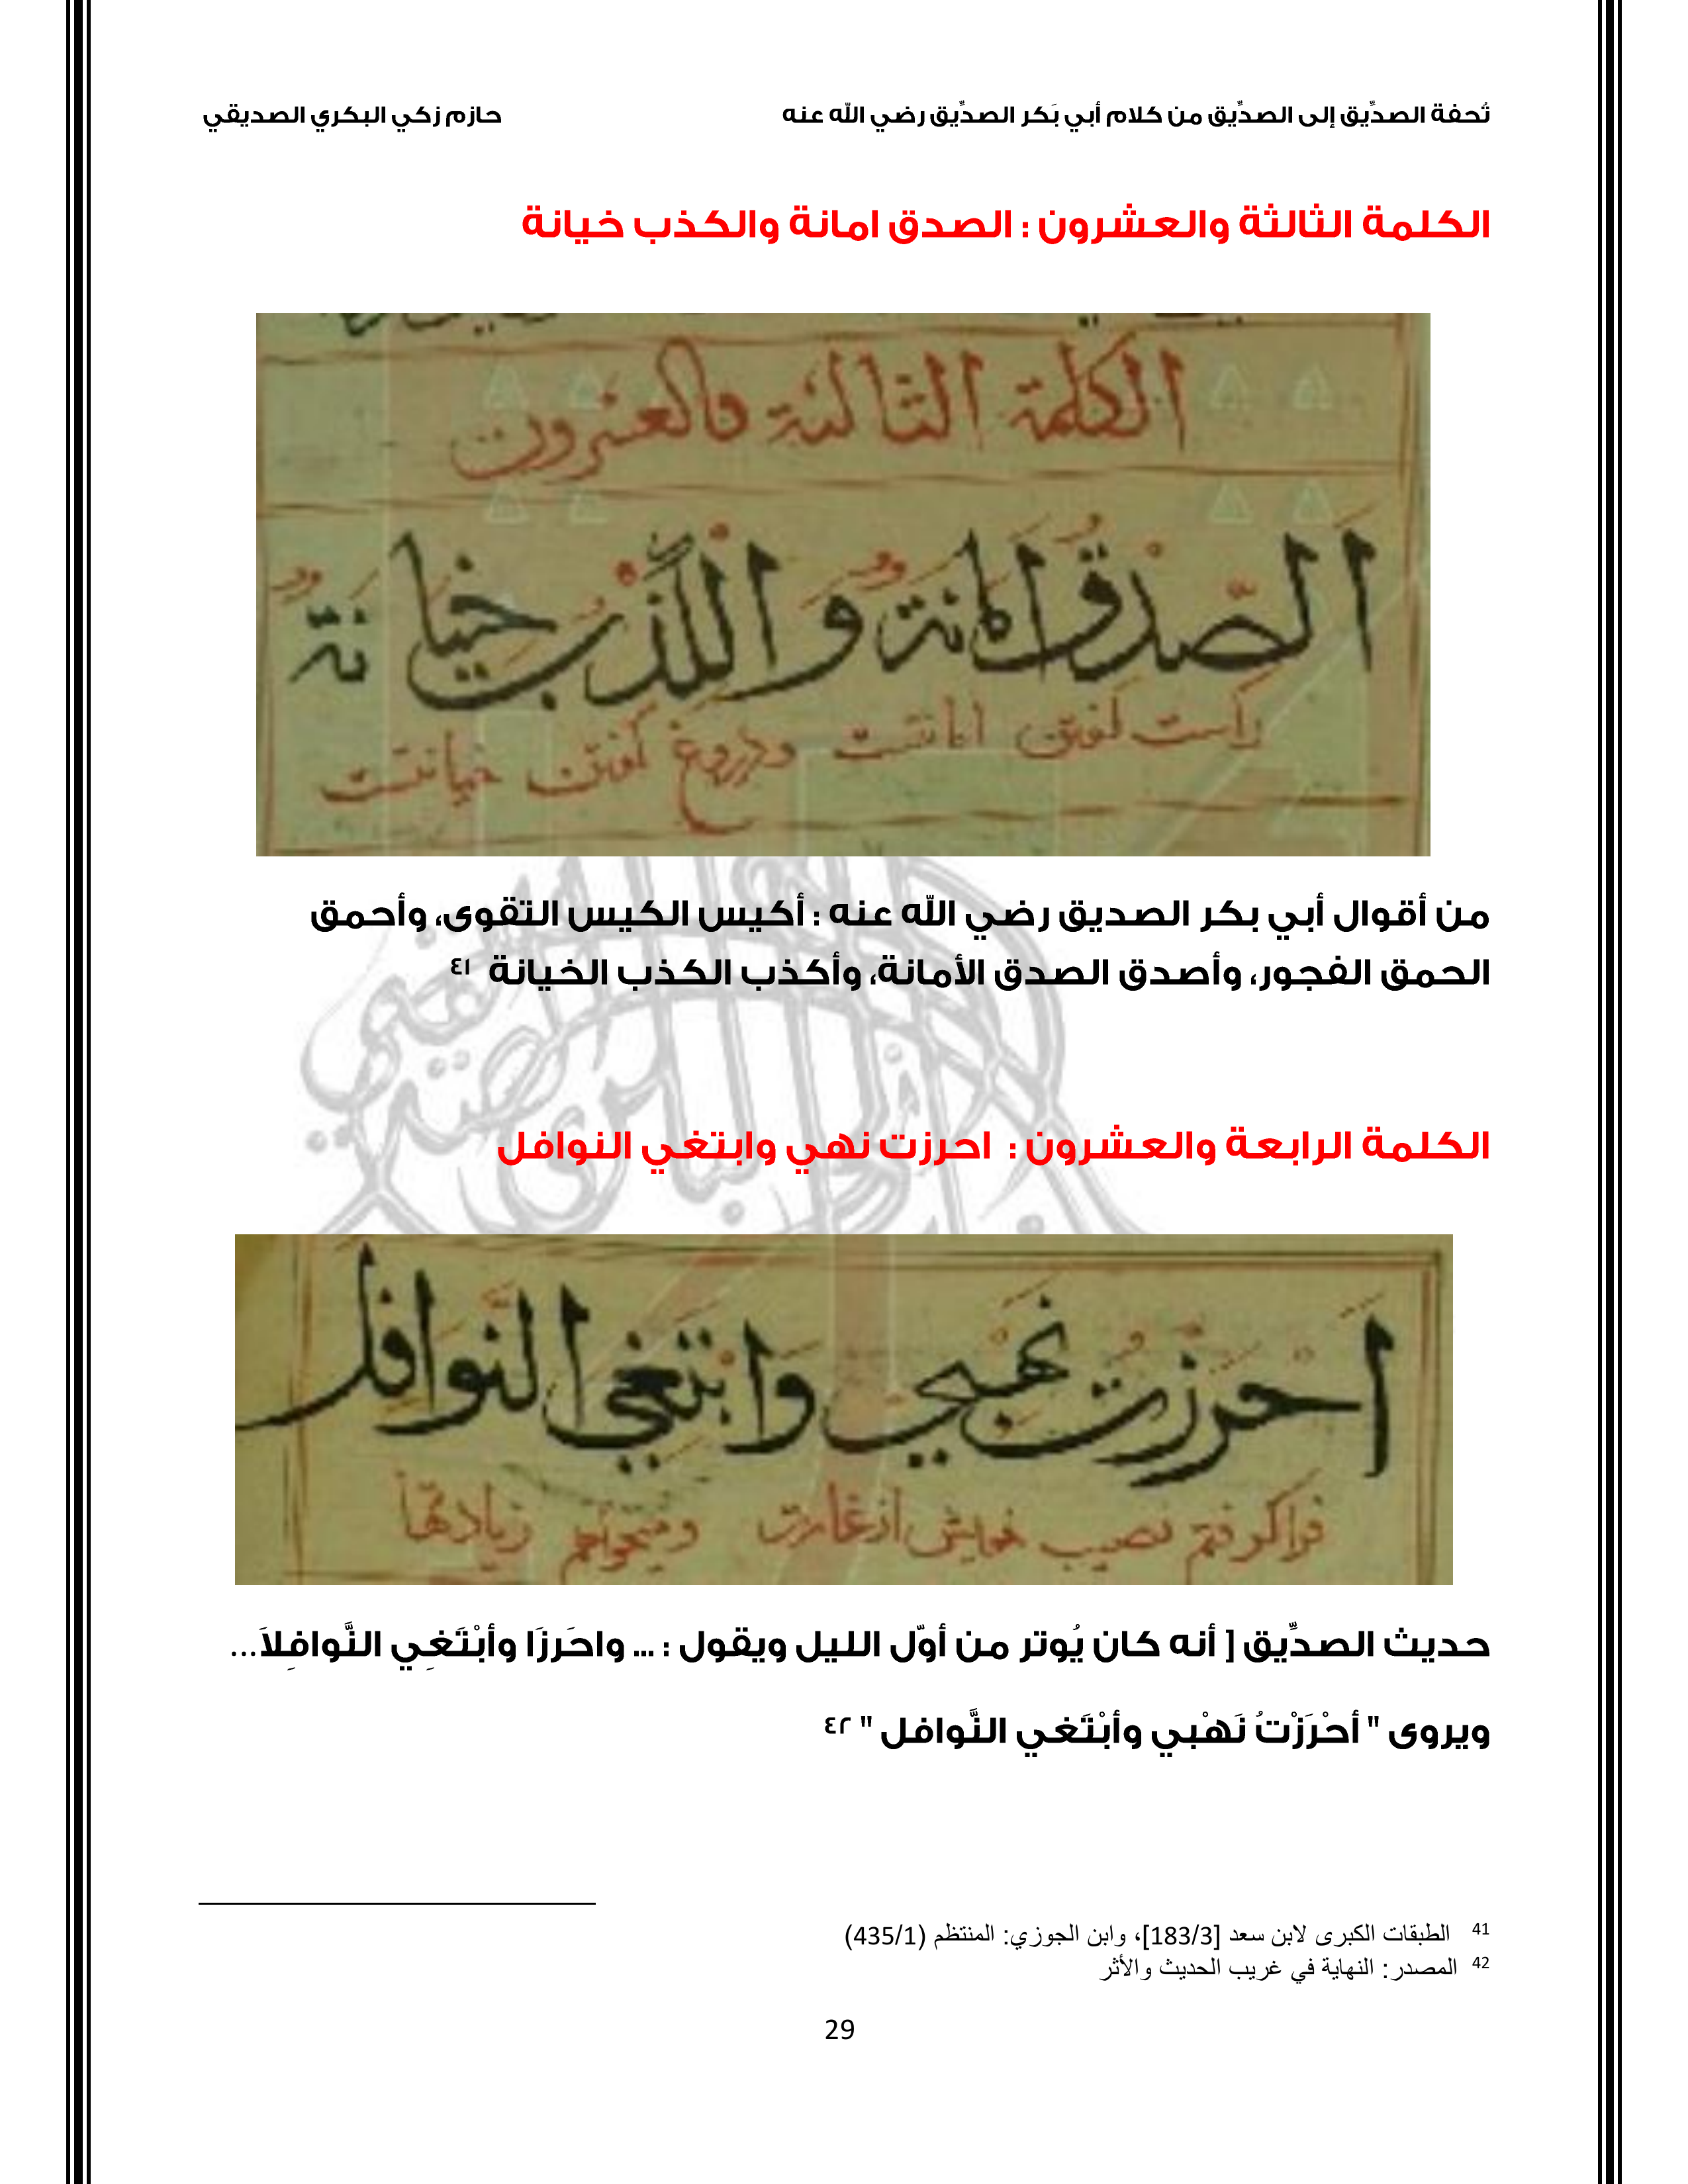 تُحفة الصدِّيق إلى الصدِّيق من كلام أبي بَكر الصدِّيق رضي الله عنه حازم زكي البكري الصديقي
الكلمة الثالثة والعشرون : الصدق امانة والكذب خيانة
الكلمة الثالثة والعشرون
الصّدق امانة والكذب خيانة
راست كفتن امانتست ودروغ كفتن خيانتست
من أقوال أبي بكر الصديق رضي الله عنه : أكيس الكيس التقوى، وأحمق
الحمق الفجور، وأصدق الصدق الأمانة، وأكذب الكذب الخيانة ٤١
الكلمة الرابعة والعشرون : احرزت نهي وابتغي النوافل
احرزت نهبي وابتغي النوافل
فراكرفتم نصيب خويش از غارت وميخواهم زيادتها
حديث الصدِّيق [ أنه كان يُوتر من أوّل الليل ويقول : ... واحَرزَا وأبْتَغِي النَّوافِلاَ...
ويروى " أحْرَزْتُ نَهْبي وأبْتَغي النَّوافل " ٤٢
41 الطبقات الكبرى لابن سعد [183/3]، وابن الجوزي: المنتظم (435/1)
42 المصدر: النهاية في غريب الحديث والأثر
29